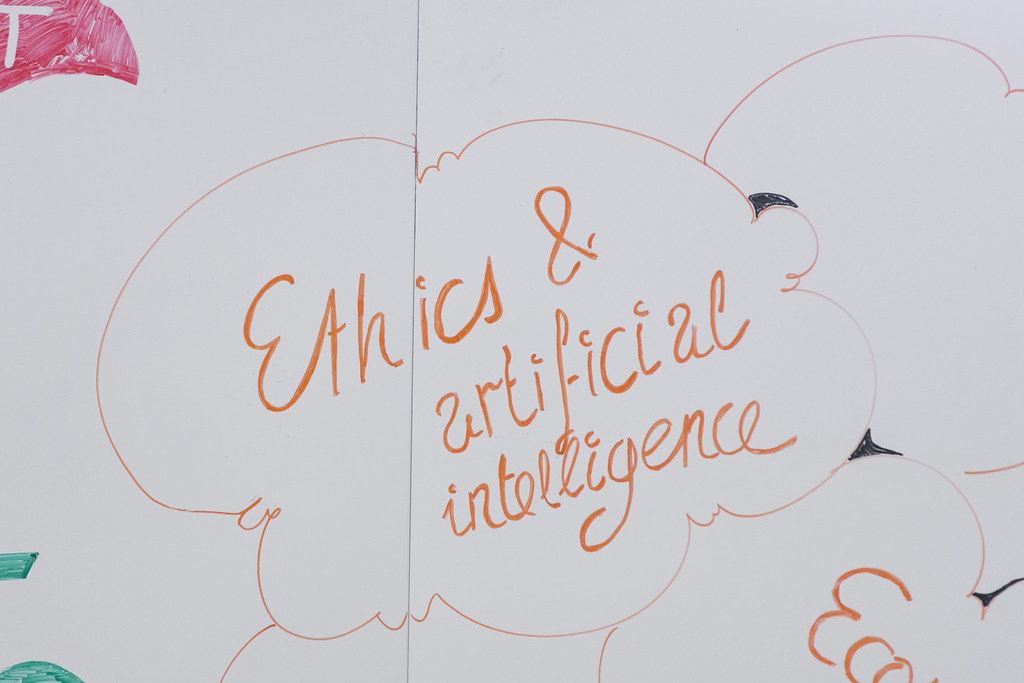 T
Ethics &
artificial
intelligence